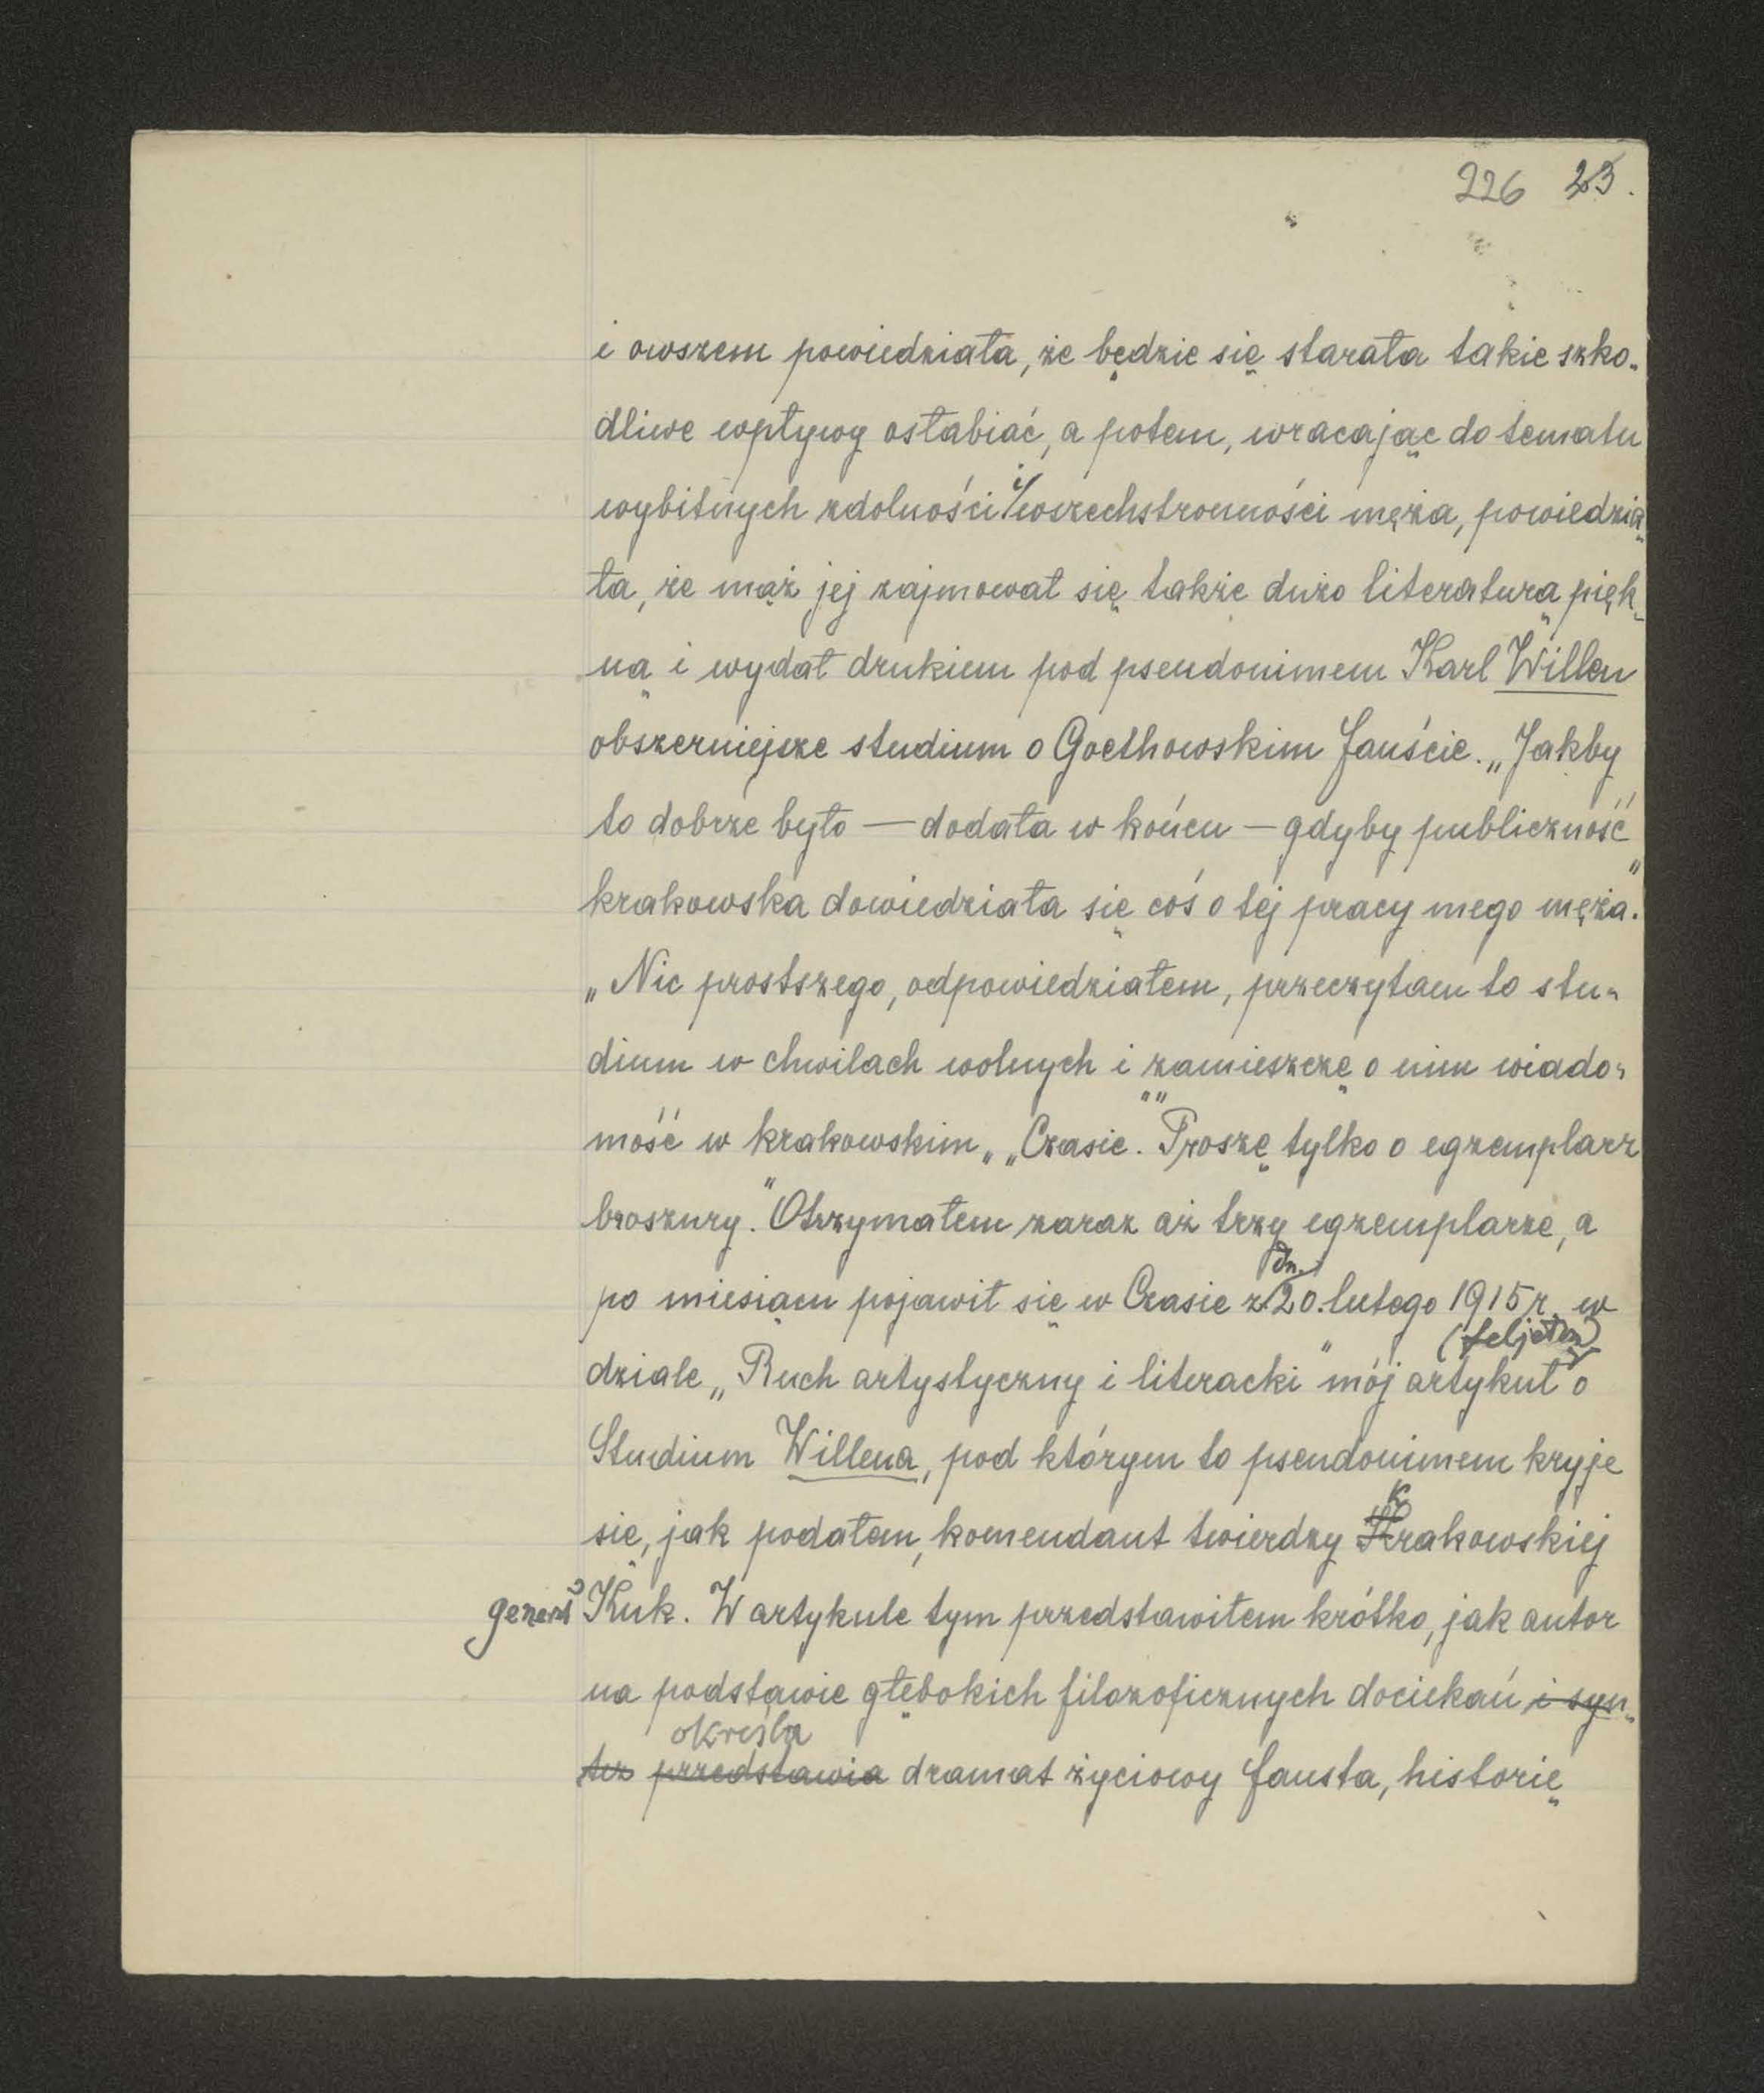 226 23.
i owszem powiedziała, że będzie się starała takie szko-
dliwe wpływy osłabiać, a potem, wracając do tematu
wybitnych zdolności i wszechstronności męża, powiedzia-
ła, że mąż jej zajmował się także dużo literaturą pięk-
ną i wydał drukiem pod pseudonimem Karl Willen
obszerniejsze studium o Goethowskim Fauście. „Jakby
to dobrze było — dodała w końcu — gdyby publiczność
krakowska dowiedziała się coś o tej pracy mego męża."
„Nic prostszego, odpowiedziałem, przeczytam to stu-
dium w chwilach wolnych i zamieszczę o nim wiado-
mość w krakowskim „„Czasie."" Proszę tylko o egzemplarz
broszury." Otrzymałem zaraz aż trzy egzemplarze, a
po miesiącu pojawił się w Czasie z dn. 20. lutego 1915 r. w
dziale „Ruch artystyczny i literacki" mój artykuł (feljeton) o
Studium Willena, pod którym to pseudonimem kryje
się, jak podałem, komendant twierdzy krakowskiej
generał Kuk. W artykule tym przedstawiłem krótko, jak autor
na podstawie głębokich filozoficznych dociekań i syn-
tez przedstawia określa dramat życiowy Fausta, historię